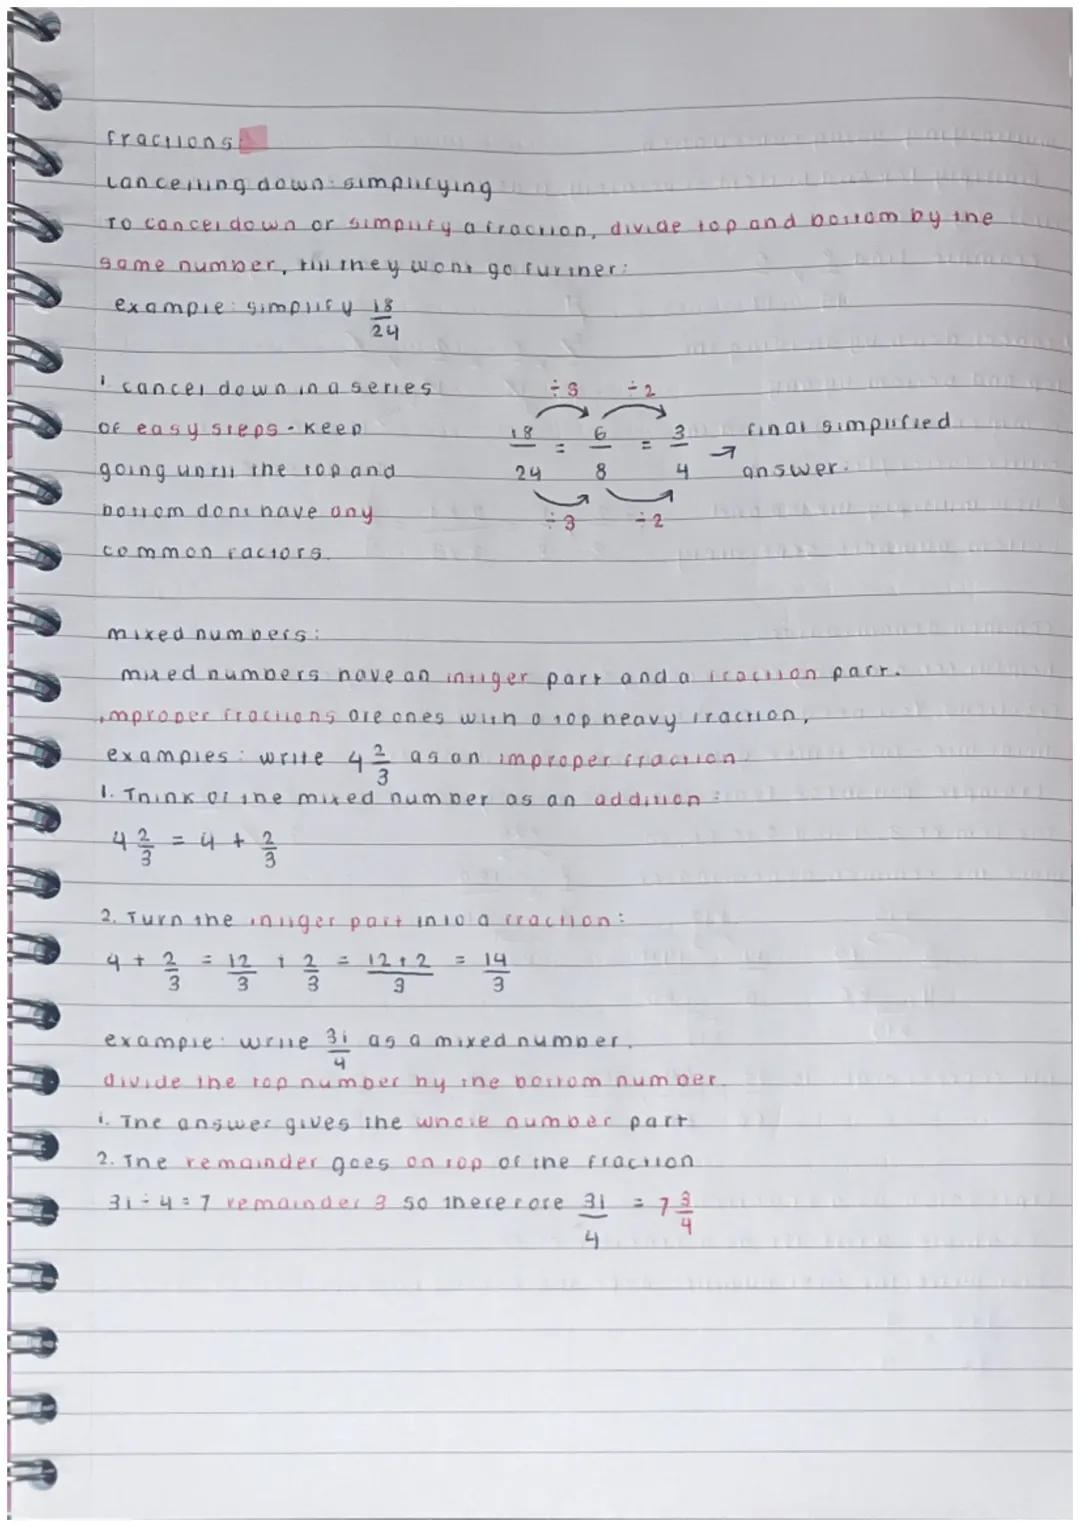 fractions:
cancelling down: simplifying
To cancel down or simplify a fraction, divide top and bottom by the
same number, till they wont go further:
example: simplify 18/24
1 cancel down in a series
of easy steps - keep
going until the top and
bottom dont have any
common factors.
÷3 ÷2
18/24 = 6/8 = 3/4 → final simplified
answer.
÷3 ÷2
mixed numbers:
mixed numbers have an intiger part and a fraction part.
improper fractions are ones with a top heavy fraction,
examples: write 4 2/3 as an improper fraction
1. Think of the mixed number as an addition:
4 2/3 = 4 + 2/3
2. Turn the intiger part into a fraction:
4 + 2/3 = 12/3 + 2/3 = 12+2/3 = 14/3
example: write 31/4 as a mixed number.
divide the top number by the bottom number.
1. The answer gives the whole number part
2. The remainder goes on top of the fraction
31÷4=7 remainder 3 so therefore 31/4 = 7 3/4